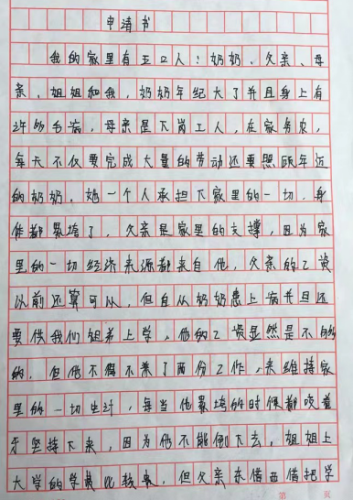 申请书
我的家里有五口人：奶奶、父亲、母
亲、姐姐和我，奶奶年纪大了并且身上有
许多毛病，母亲是下岗工人，在家务农，
每天不仅要完成大量的劳动还要照顾年迈
的奶奶。她一个人承担下家里的一切，身
体都累垮了，父亲是家里的支撑，因为家
里的一切经济来源都来自他，父亲的工资
以前还算可以，但自从奶奶患上病并且还
要供我们姐弟上学，他的工资显然是不够
的，但他不得不兼了两份工作，来维持家
里的一切生计，每当他累垮的时候都咬着
牙坚持下来，因为他不能倒下去，姐姐上
大学的学费比较 ，但父亲东借西借把学
第 页